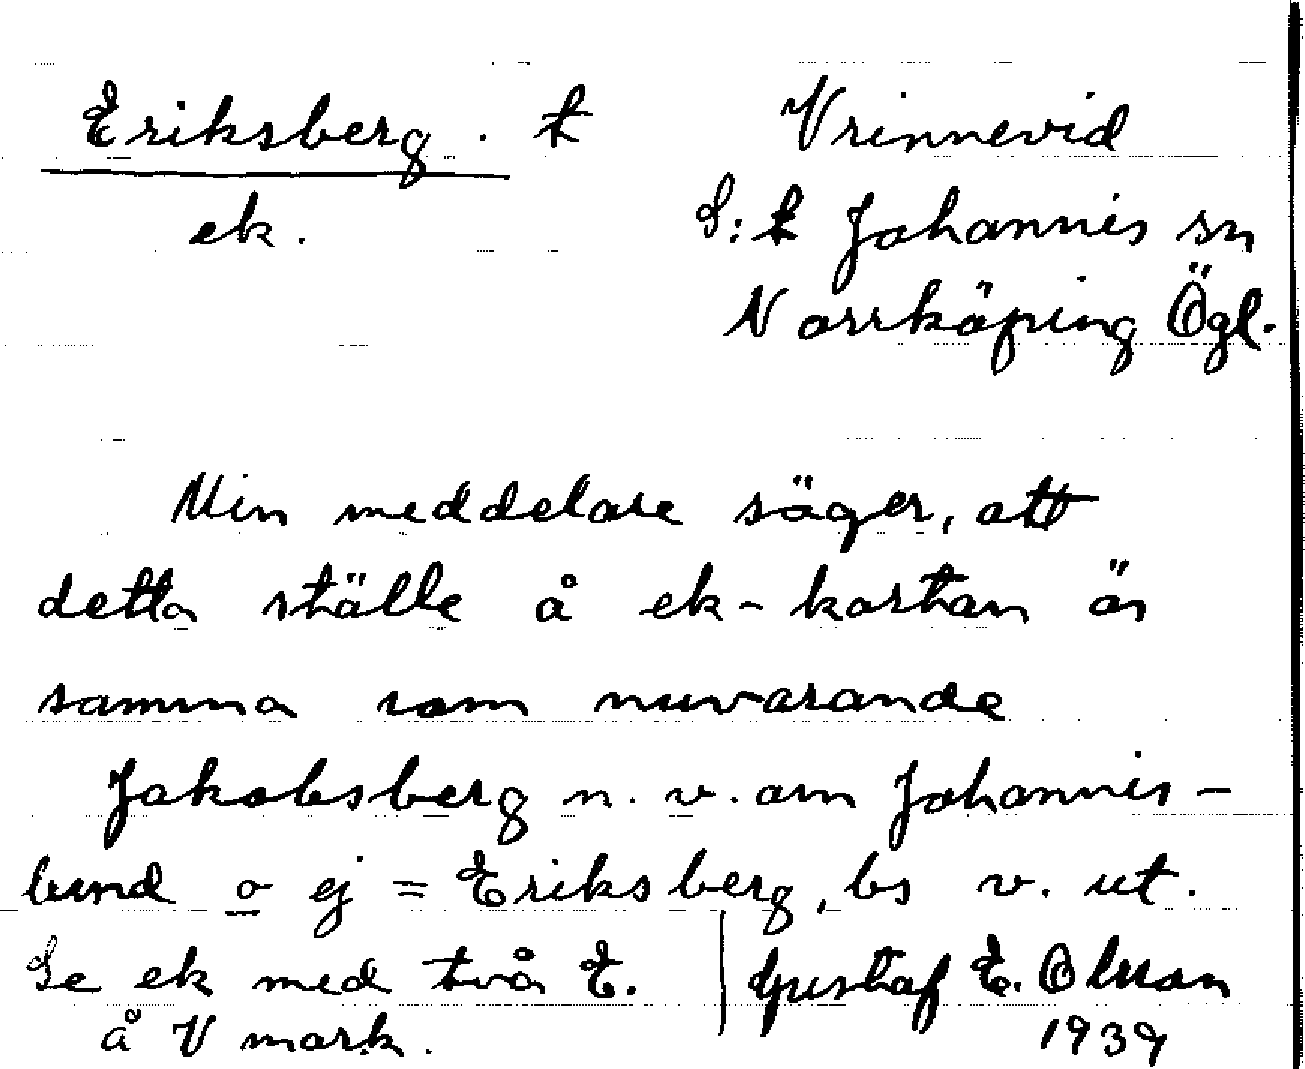 Eriksberg. t Vrinnevid
ek. S:t Johannis sn
Norrköping Ögl.
Min meddelare säger, att
detta ställe å ek-kartan är
samma som nuvarande
Jakobsberg n.v. om Johannis-
lund o ej = Eriksberg, bs v. ut.
Se ek med två E.
å V mark.
Gustaf E. Olsson
1939